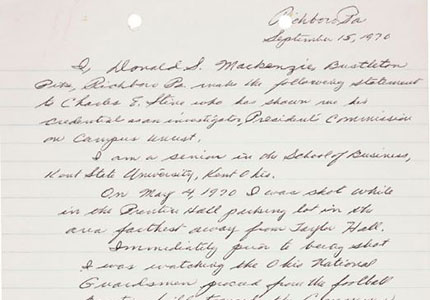 Richboro Pa
September 15, 1970
I, Donald S. Mackenzie Bustleton
Pike, Richboro Pa. make the following statement
to Charles E. Stine who has shown me his
credential as an investigator, President's Commission
on Campus Unrest.
I am a senior in the School of Business,
Kent State University, Kent Ohio.
On May 4, 1970 I was shot while
in the Prentice Hall parking lot in the
area farthest away from Taylor Hall.
Immediately prior to being shot
I was watching the Ohio National
Guardsmen proceed from the football